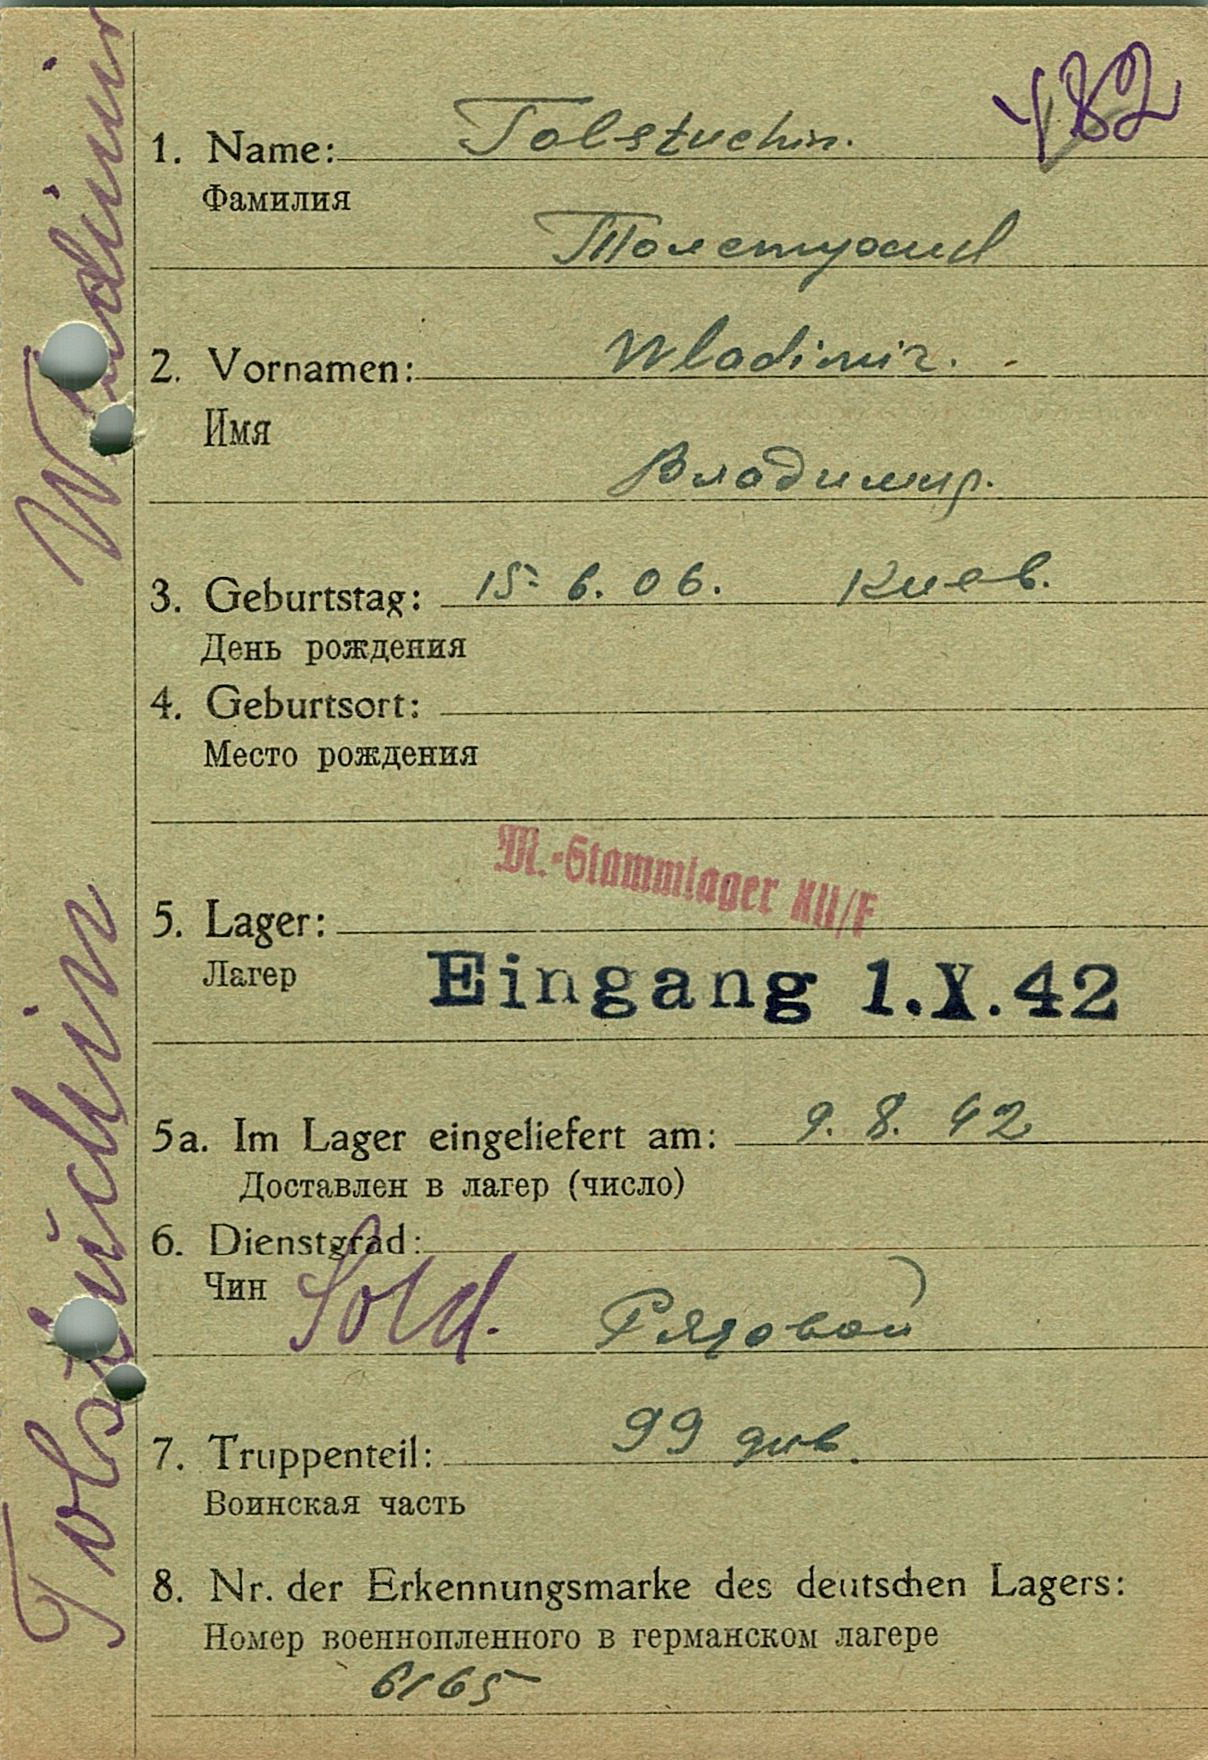 1. Name: Tolstuchin.
Фамилия
Толстухин
2. Vornamen: Wladimir.
Имя
Владимир.
3. Geburtstag: 15. 6. 06. Киев.
День рождения
4. Geburtsort:
Место рождения
M.-Stammlager XII/F
5. Lager:
Лагер
Eingang 1.X.42
5a. Im Lager eingeliefert am: 9. 8. 42
Доставлен в лагер (число)
6. Dienstgrad:
Чин Sold. Рядовой
7. Truppenteil: 99 див.
Воинская часть
8. Nr. der Erkennungsmarke des deutschen Lagers:
Номер военнопленного в германском лагере
6165
Tolstuchin Wladimir